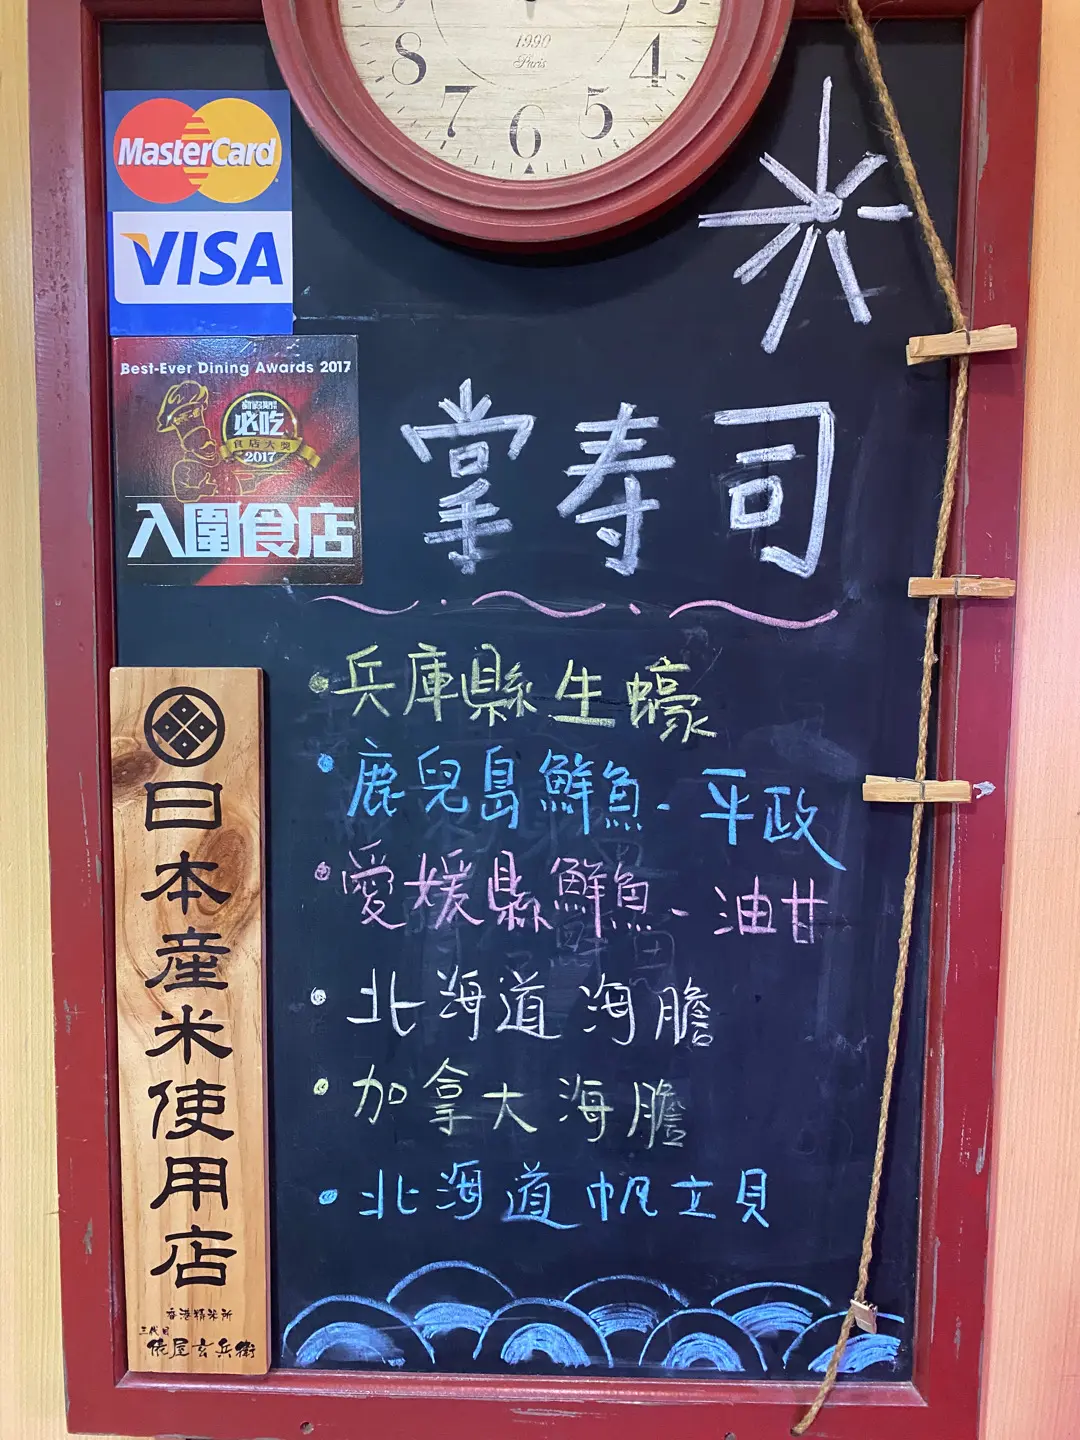 8 7 6 5 4
1990
Paris
MasterCard
VISA
Best-Ever Dining Awards 2017
必吃
食店大獎
2017
入圍食店
掌寿司
• 兵庫縣生蠔
• 鹿兒島鮮魚 - 平政
• 愛媛縣鮮魚 - 油甘
• 北海道海膽
• 加拿大海膽
• 北海道帆立貝
日本産米使用店
香港精米所
三代目
俵屋玄兵衛